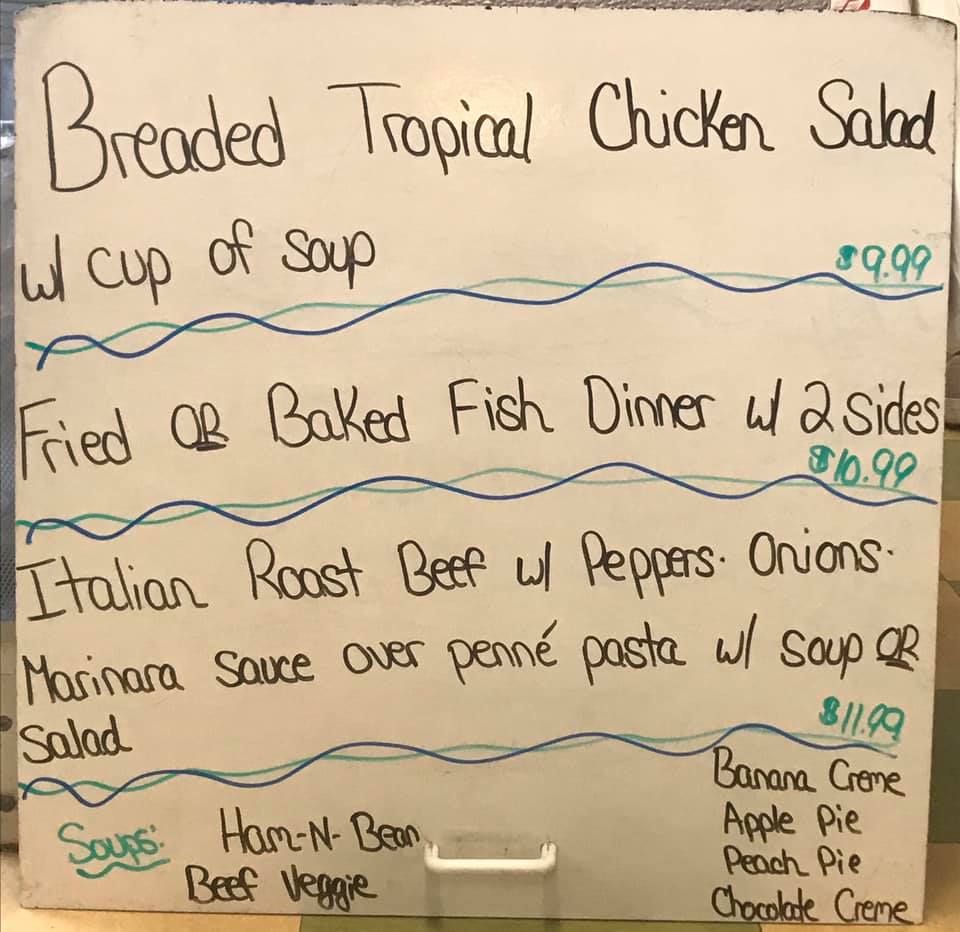 Breaded Tropical Chicken Salad
w/ cup of soup $9.99
Fried OR Baked Fish Dinner w/ 2 sides
$10.99
Italian Roast Beef w/ Peppers. Onions.
Marinara sauce over penné pasta w/ soup OR
salad $11.99
Soups: Ham-N-Bean
Beef Veggie
Banana Creme
Apple Pie
Peach Pie
Chocolate Creme